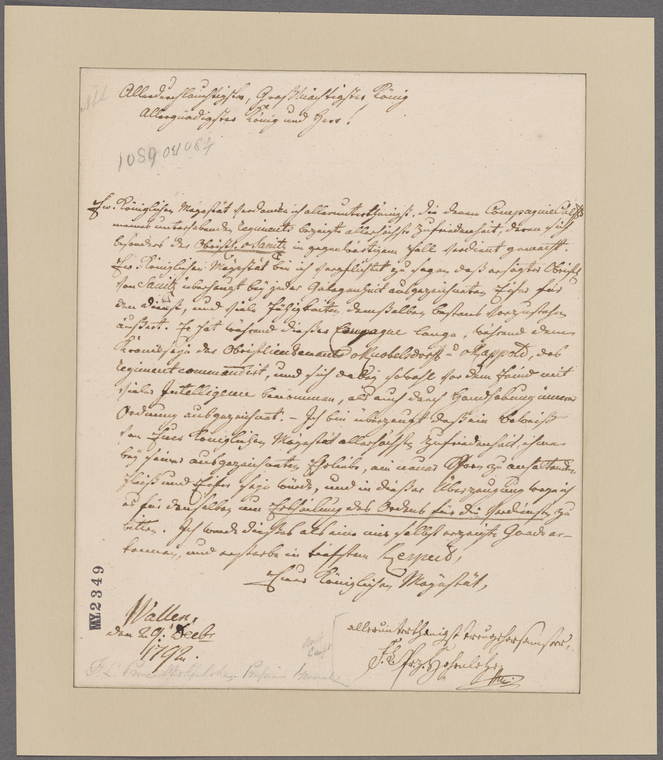 Allerdurchlauchtigster, Großmächtigster König
Allergnädigster König und Herr!
1089 OM 0801
Ew: Königlichen Majestät verdanke ich allerunterthänigst, die denen Compagnie
meines unterhabenden Regiments bezeigte allerhöchste Zufriedenheit, deren sich
besonders der Obristl: v. Sanitz in gegenwärtigem Fall verdient gemacht.
Ew: Königlichen Majestät bin ich verpflichtet zu sagen daß ersagter Obrist
von Sanitz überhaupt bey jeder Gelegenheit ausgezeichneten Eifer für
den Dienst, und viele Fähigkeiten demselben bestens vorzustehen
äußert. Er hat während dieser Campagne lange, während denen
Obristlieutenants v Knobelsdorff u v Rappold, das
Regiment commandirt, und sich dabey sowohl vor dem Feind mit
vieler Intelligence benommen, als auch durch Handhabung innerer
Ordnung ausgezeichnet. – Ich bin überzeugt daß ein Beweiß
von Euer Königlichen Majestät allerhöchsten Zufriedenheit, ihm
bey seiner ausgezeichneten Ehrliebe, ein neuer Sporn zu anhaltenden
Fleiß und Eifer seyn würde, und in dieser Überzeugung wage ich
es für denselben um Ertheilung des Ordens für die Verdienste zu
bitten. Ich werde dieses als eine mir selbst erzeigte Gnade er-
kennen, und ersterbe in tiefstem Respect,
Euer Königlichen Majestät,
MY2349
Wallen,
den 29: Decbr
1792.
allerunterthänigst treugehorsamster,
F. L. Prz. Hohenlohe
F. L. Prince Hohenlohe Prussian General